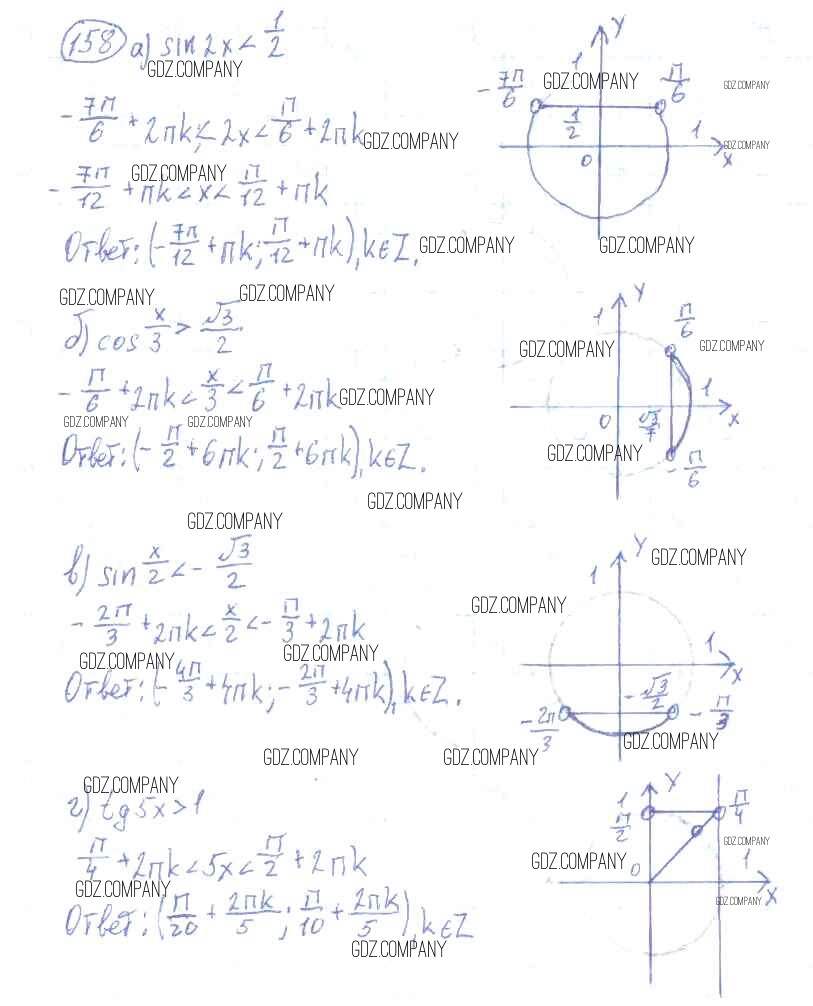 158 а) sin 2x < 1/2
GDZ.COMPANY
-7π/6 + 2πk < 2x < π/6 + 2πk GDZ.COMPANY
GDZ.COMPANY
-7π/12 + πk < x < π/12 + πk
Ответ: (-7π/12 + πk; π/12 + πk), k∈Z. GDZ.COMPANY
y
1
-7π/6 GDZ.COMPANY π/6 GDZ.COMPANY
1/2 1 GDZ.COMPANY
0 x
GDZ.COMPANY
GDZ.COMPANY GDZ.COMPANY
б) cos x/3 > √3/2
-π/6 + 2πk < x/3 < π/6 + 2πk GDZ.COMPANY
GDZ.COMPANY GDZ.COMPANY
Ответ: (-π/2 + 6πk; π/2 + 6πk), k∈Z.
GDZ.COMPANY
y
1 π/6
GDZ.COMPANY GDZ.COMPANY
1
0 x
GDZ.COMPANY -π/6
GDZ.COMPANY
в) sin x/2 < -√3/2
-2π/3 + 2πk < x/2 < -π/3 + 2πk
GDZ.COMPANY GDZ.COMPANY
Ответ: (-4π/3 + 4πk; -2π/3 + 4πk), k∈Z.
y GDZ.COMPANY
1
GDZ.COMPANY
1
x
-√3/2
-2π/3 -π/3
GDZ.COMPANY
GDZ.COMPANY GDZ.COMPANY
GDZ.COMPANY
г) tg 5x > 1
π/4 + 2πk < 5x < π/2 + 2πk
GDZ.COMPANY
Ответ: (π/20 + 2πk/5; π/10 + 2πk/5), k∈Z
GDZ.COMPANY
y
1 π/4
π/2
GDZ.COMPANY
GDZ.COMPANY 1
0 x
GDZ.COMPANY